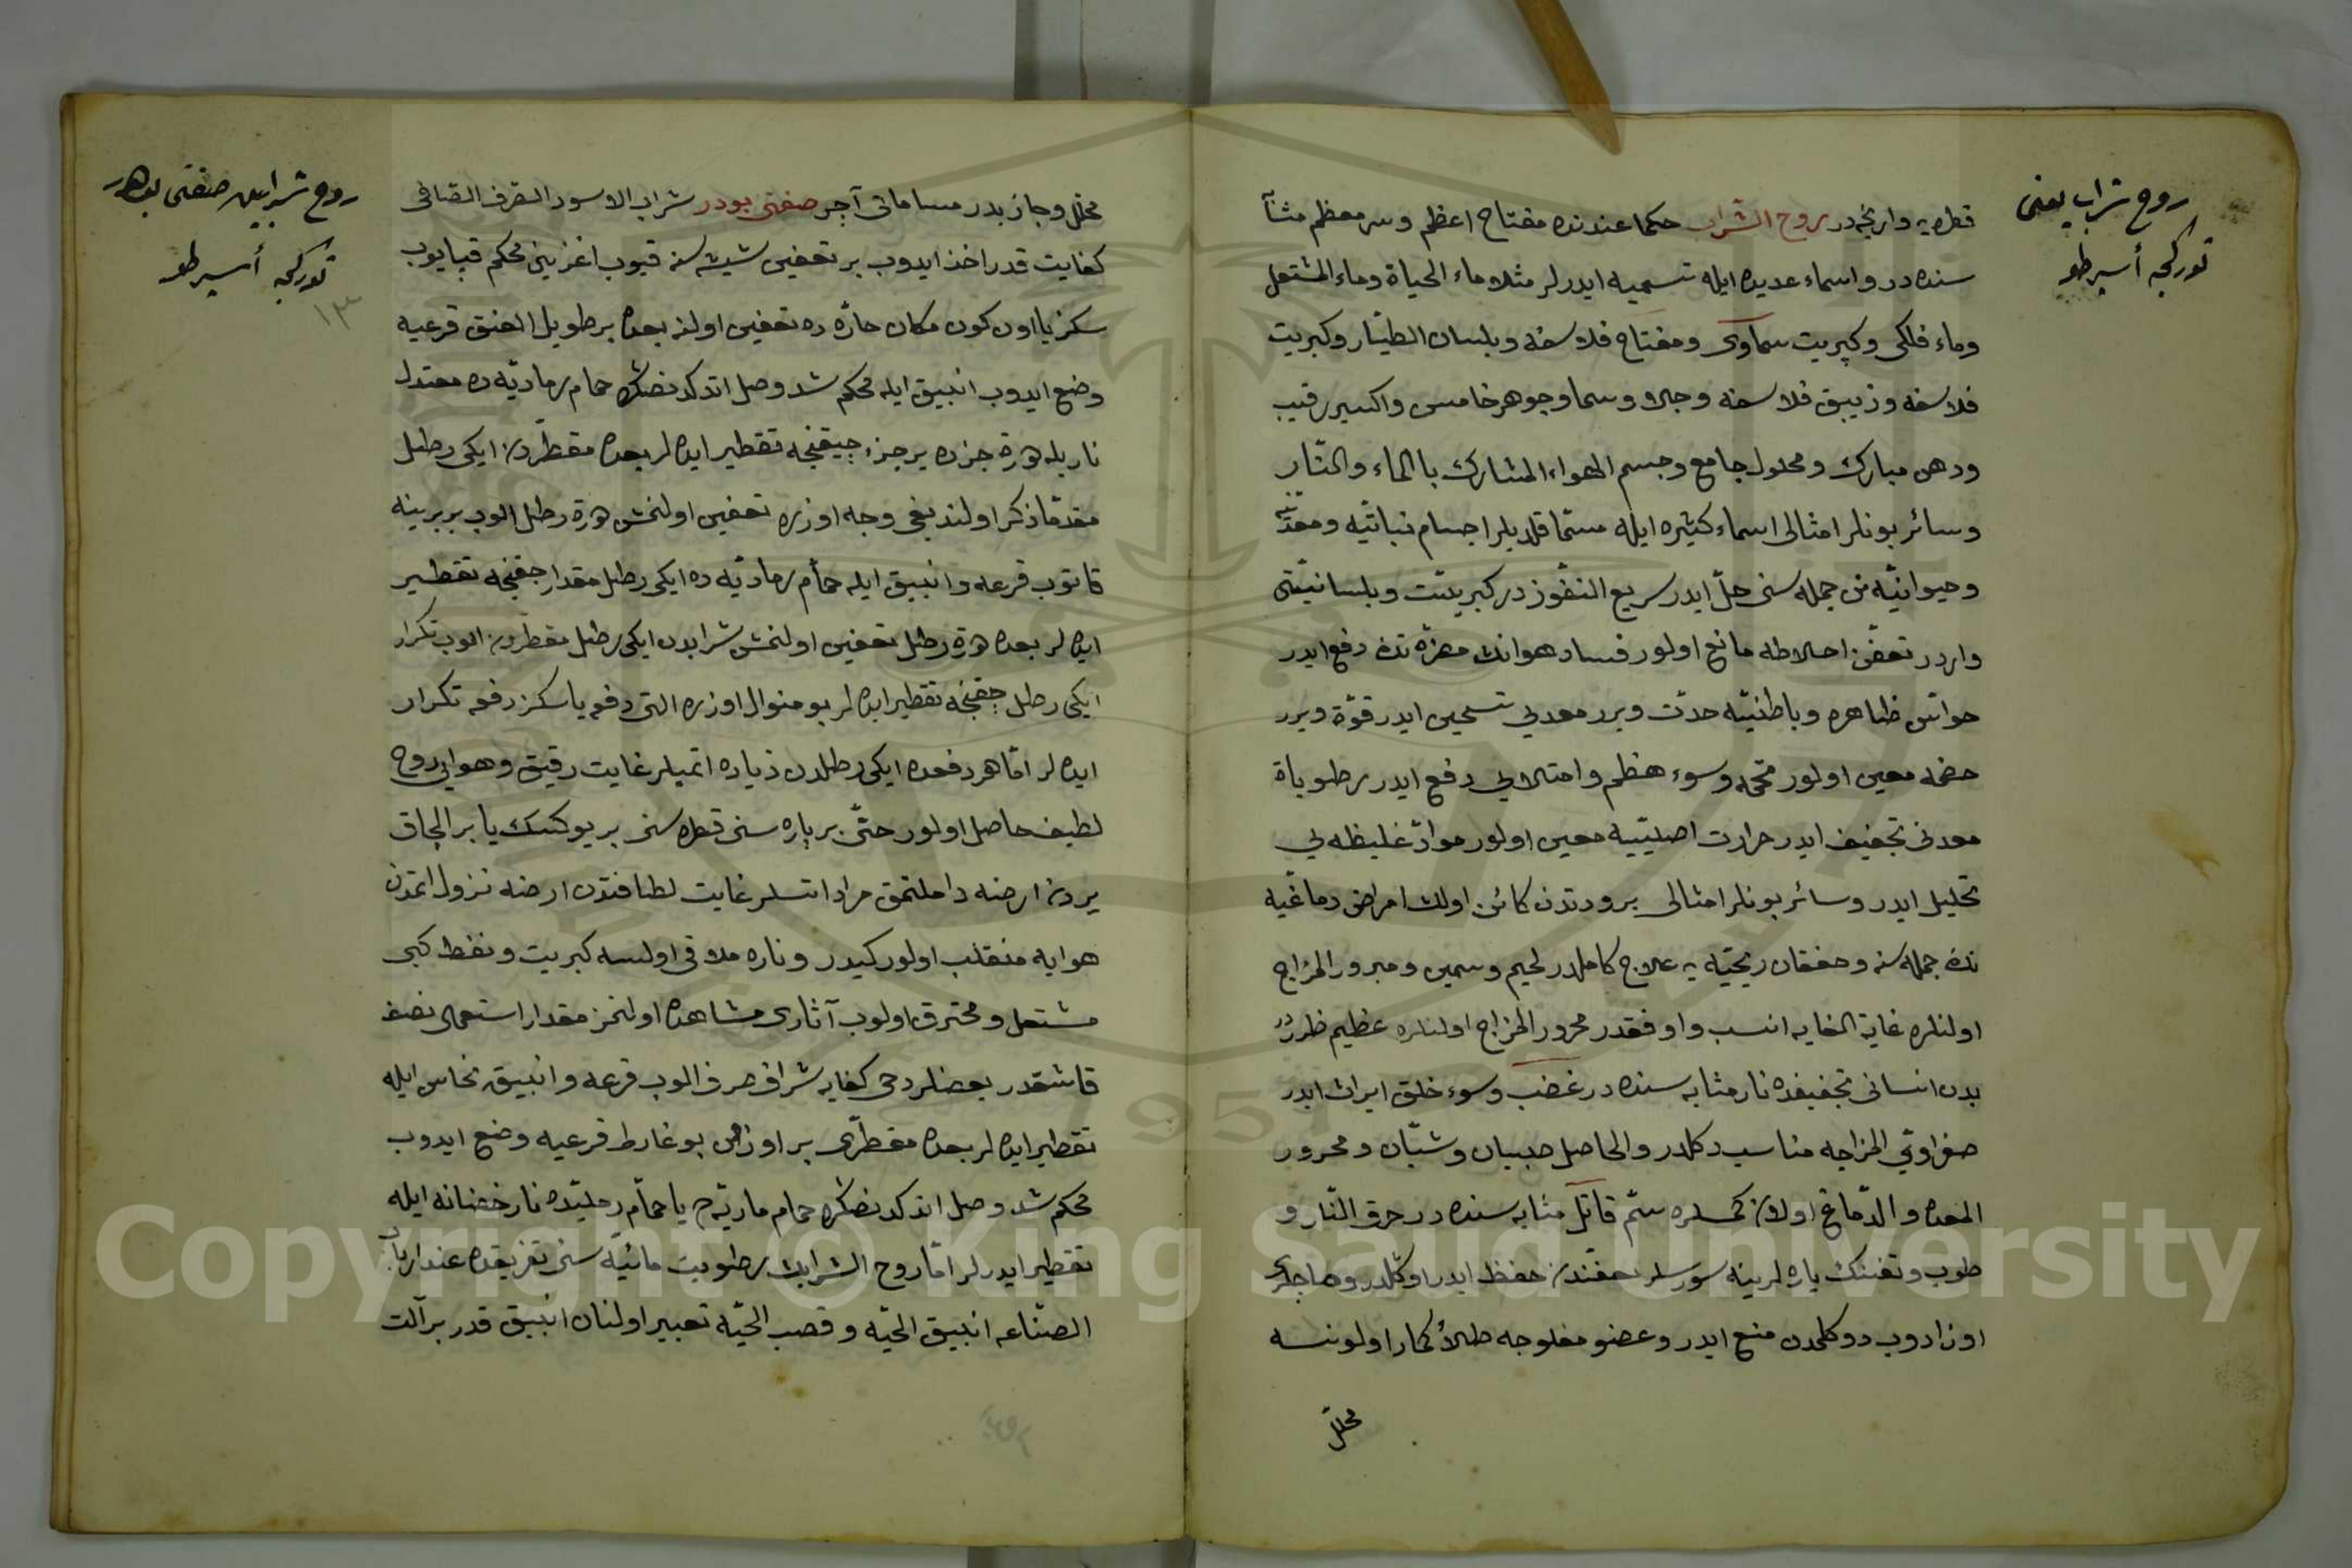 روح شراب يعنی
تورکجه أسپرطو
قطره‌يه وارنجه‌در روح الشراب حکما عندنده مفتاح اعظم وسر معظم مثابه
سنده‌در و اسماء عديده ايله تسميه ايدرلر مثلا ماء الحياة وماء المشتعل
وماء فلکی وکبريت سماوی ومفتاح فلاسفه وبلسان الطيّار وکبريت
فلاسفه وزيبق فلاسفه وجلاو وسما وجوهر خامس واکسير رقيب
ودهن مبارك ومحلول جامع وجسم الهواء المشارك باالماء والنّار
وسائر بونلر امثالی اسماء کثيره ايله مسمّا قلديلر اجسام نباتيّه ومعدنيّه
وحيوانيّه نن جمله سنی حلّ ايدر سريع النفّوز در کبريتيّت وبلسانيّتی
واردر تعفّن اخلاطه مانع اولور فساد هوانك مضرّه تندن دفع ايدر
حواسّ ظاهره وباطنيّه حدّت ويرر معده‌يی تسخين ايدر قوّة ويرر
هضمه معين اولور تخمه وسوء هظم وامتلايی دفع ايدر رطوباة
معدنی تجفيف ايدر حرارت اصليّيه معين اولور موادّ غليظه‌يی
تحليل ايدر وسائر بونلر امثالی برودتدن کائن اولان امراض دماغيّه
نك جمله سنه وخفقان ريحيّه‌يه علاج کاملدر لحيم وسمين ومبرور المزاج
اولنلره غاية الغايه انسب واوفقدر محرور المزاج اولنلره عظيم ظرردر
بدن انسانی تجفيفده نار مثابه سنده‌در غضب وسوء خلق ايراث ايدر
صفراوی المزاجه مناسب دکلدر والحاصل صبيان وشبّان ومحرور
المعده والدّماغ اولان کمسلره سمّ قاتل مثابه سنده‌در حرق النّار و
طوب وتفنك ياره لرينه سورسلر تعفّندن حفظ ايدر اوکلدر وصاچلری
اوزادوب دوکلمدن منع ايدر وعضو مفلوجه طلاء کمار اولونسه
محلّل
روح شرابين صنعتی بودر
تورکجه أسپرطو
١٣
محلّل وجاذبدر مساماتی آچر صنعتی بودر شراب الاسود الصّرف الصّافی
کفايت قدر اخذ ايدوب بر تعفين شيشه سنه قيوب اغزينی محکم قپايوب
سکز يا اون کون مکان حارّه ده تعفين اولنه بعده بر طويل العنق قرعيه
وضع ايدوب انبيق ايله محکم شد وصل اتدکدنصکره حمام رماديّه ده معتدل
ناريله هر اون جزءده بر جزء چيقنجه تقطير ايده‌لر بعده مقطّردن ايکی رطل
مقدّما ذکر اولنديغی وجه اوزره تعفين اولنمش هر اون رطل الوب بربرينه
قاتوب قرعه وانبيق ايله حمّام رماديّه ده ايکی رطل مقدار چقنجه تقطير
ايده‌لر بعده هر اون رطل تعفين اولنمش شرابدن ايکی رطل مقطّردن الوب تکرار
ايکی رطل چقنجه تقطير ايده‌لر بو منوال اوزره التی دفعه يا سکز دفعه تکرار
ايده‌لر امّا هر دفعده ايکی رطلدن زياده اتميلر غايت رقيق وهوايی روح
لطيف حاصل اولور حتّی بر پاره سنی قطره سنی بر يوکسك يا بر الچاق
يردن ارضه داملتمق مراد اتسلر غايت لطافتدن ارضه نزول اتمدن
هوايه منقلب اولور کيدر وناره ملاقی اولسه کبريت ونفط کبی
مشتعل ومحترق اولوب آثاری مشاهده اولنمز مقدار استعمالی نصف
قاشقدر بعضلر دخی کفايه شراب صرف الوب قرعه وانبيق نحاس ايله
تقطير ايده‌لر بعده مقطّری بر اوزون بوغازلو قرعيه وضع ايدوب
محکم شد وصل اتدکدنصکره حمام ماريّه ده يا حمّام رمليّده نار خضانه ايله
تقطير ايدرلر امّا روح الشرابك رطوبت مائيّه سنی تفريقده عند ارباب
الصنّاعه انبيق الحيّه وقصب الحيّه تعبير اولنان انبيق قدر بر آلت